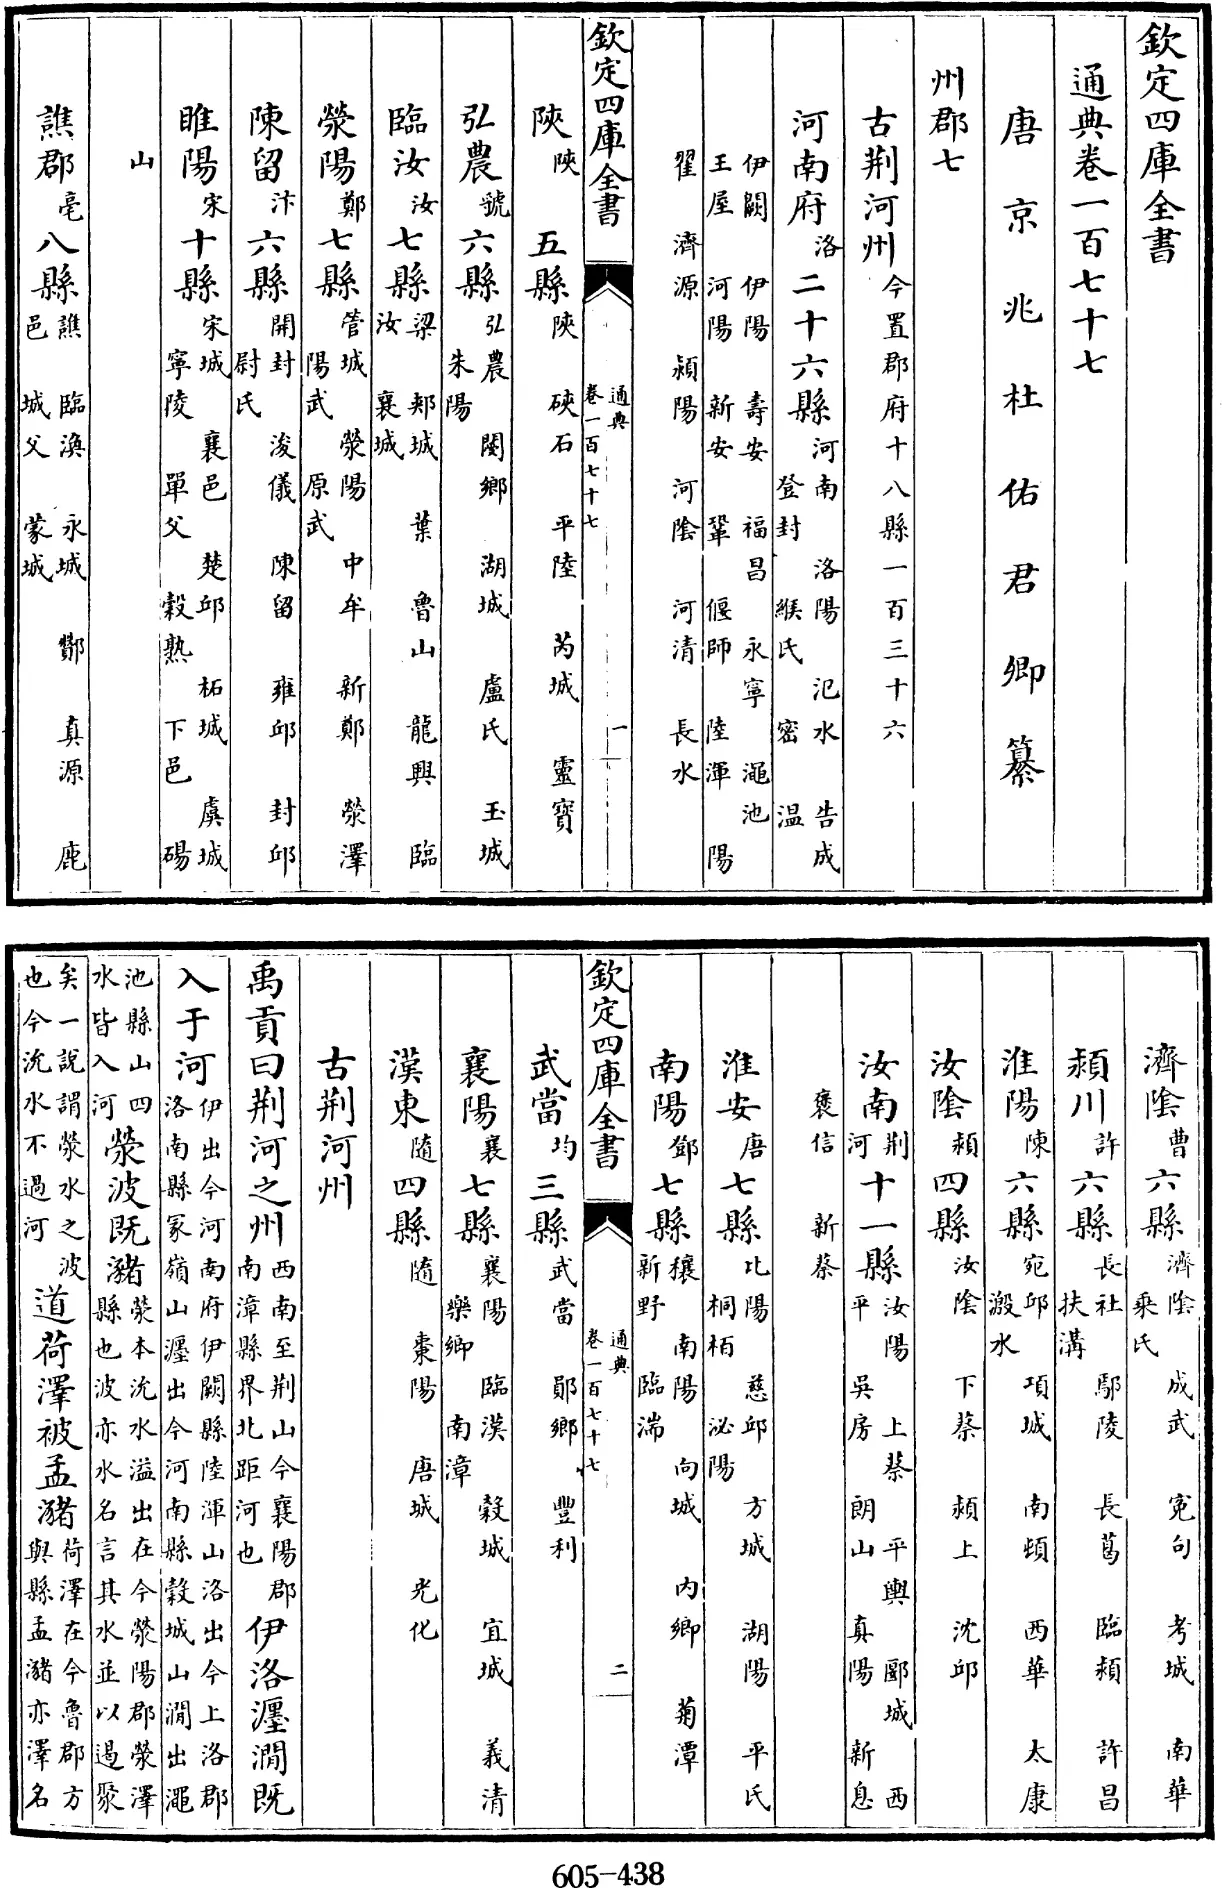 欽定四庫全書
通典卷一百七十七
唐京兆杜佑君卿纂
州郡七
古荆河州今置郡府十八縣一百三十六
河南府洛二十六縣河南 洛陽 氾水 告成 登封 緱氏 密 温
伊闕 伊陽 壽安 福昌 永寧 澠池 王屋 河陽 新安 鞏 偃師 陸渾 陽
翟 濟源 潁陽 河陰 河清 長水
欽定四庫全書 通典卷一百七十七 一
陜陜五縣陜 硤石 平陸 芮城 靈寳
弘農虢六縣弘農 閿鄉 湖城 盧氏 玉城 朱陽
臨汝汝七縣梁 郟城 葉 魯山 龍興 臨汝 襄城
滎陽鄭七縣管城 滎陽 中牟 新鄭 滎澤 陽武 原武
陳留汴六縣開封 浚儀 陳留 雍邱 封邱 尉氏
睢陽宋十縣宋城 襄邑 楚邱 柘城 虞城 寧陵 單父 穀熟 下邑 碭
山
譙郡亳八縣譙 臨渙 永城 酇 真源 鹿邑 城父 蒙城
濟陰曹六縣濟陰 成武 寃句 考城 南華 乘氏
潁川許六縣長社 鄢陵 長葛 臨潁 許昌 扶溝
淮陽陳六縣宛邱 項城 南頓 西華 太康 溵水
汝陰潁四縣汝陰 下蔡 潁上 沈邱
汝南荆河十一縣汝陽 上蔡 平輿 郾城 西平 吳房 朗山 真陽 新息
褒信 新蔡
淮安唐七縣比陽 慈邱 方城 湖陽 平氏 桐栢 泌陽
南陽鄧七縣穰 南陽 向城 内鄉 菊潭 新野 臨湍
欽定四庫全書 通典卷一百七十七 二
武當均三縣武當 鄖鄉 豐利
襄陽襄七縣襄陽 臨漢 穀城 宜城 義清 樂鄉 南漳
漢東隨四縣隨 棗陽 唐城 光化
古荆河州
禹貢曰荆河之州西南至荆山今襄陽郡南漳縣界北距河也伊洛瀍澗既
入于河伊出今河南府伊闕縣陸渾山洛出今上洛郡洛南縣冢嶺山瀍出今河南縣穀城山澗出澠
池縣山四水皆入河滎波既瀦滎本沇水溢出在今滎陽郡滎澤縣也波亦水名言其水並以遏聚
矣一說謂滎水之波也今沇水不過河道荷澤被孟瀦荷澤在今魯郡方與縣孟瀦亦澤名
605-438